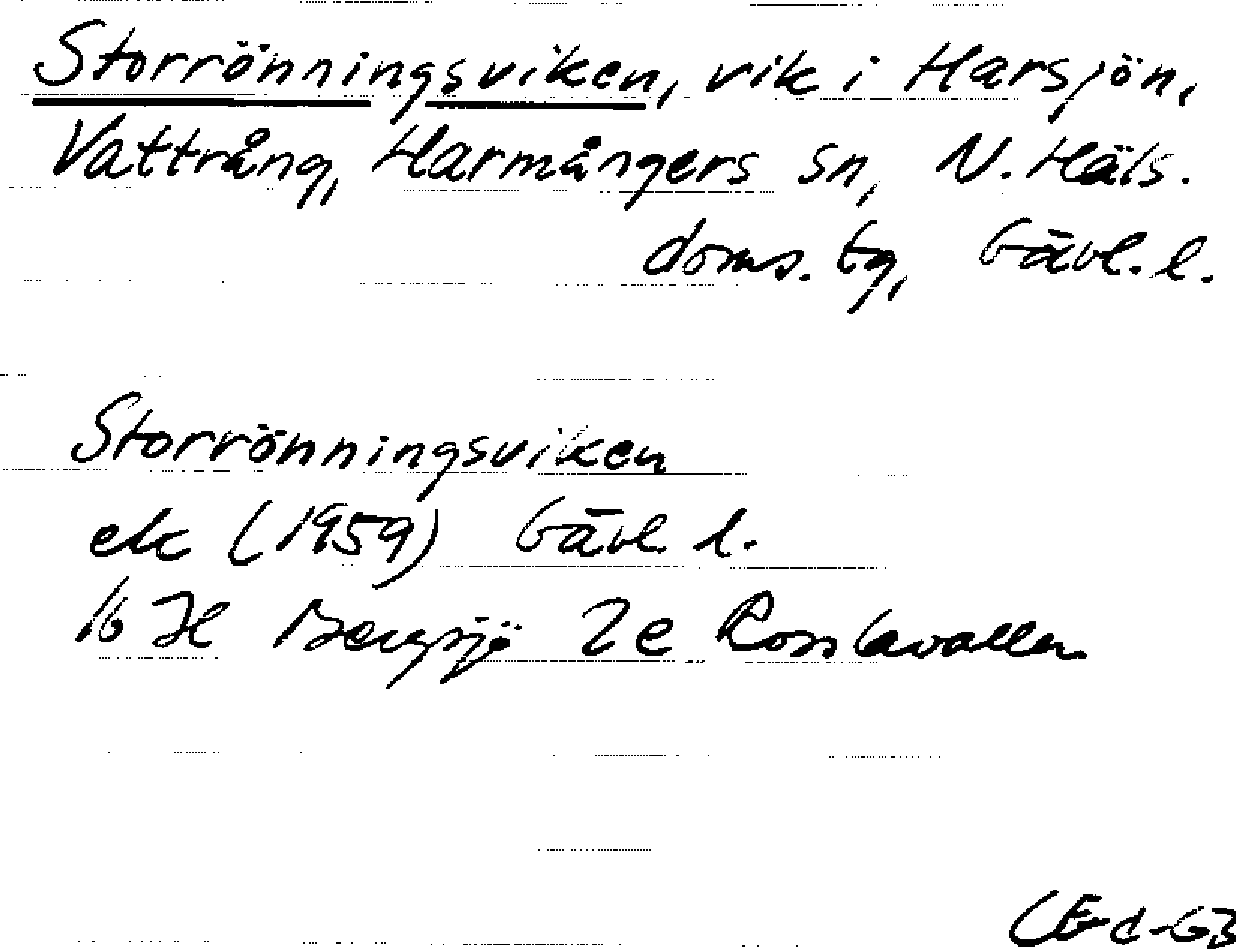 Storrönningsviken, vik i Harsjön,
Vattrång, Harmångers sn, N. Häls.
doms. tg, Gävl. l.
Storrönningsviken
ek (1959) Gävl. l.
16 H Bergsjö 2e Rosslavallen